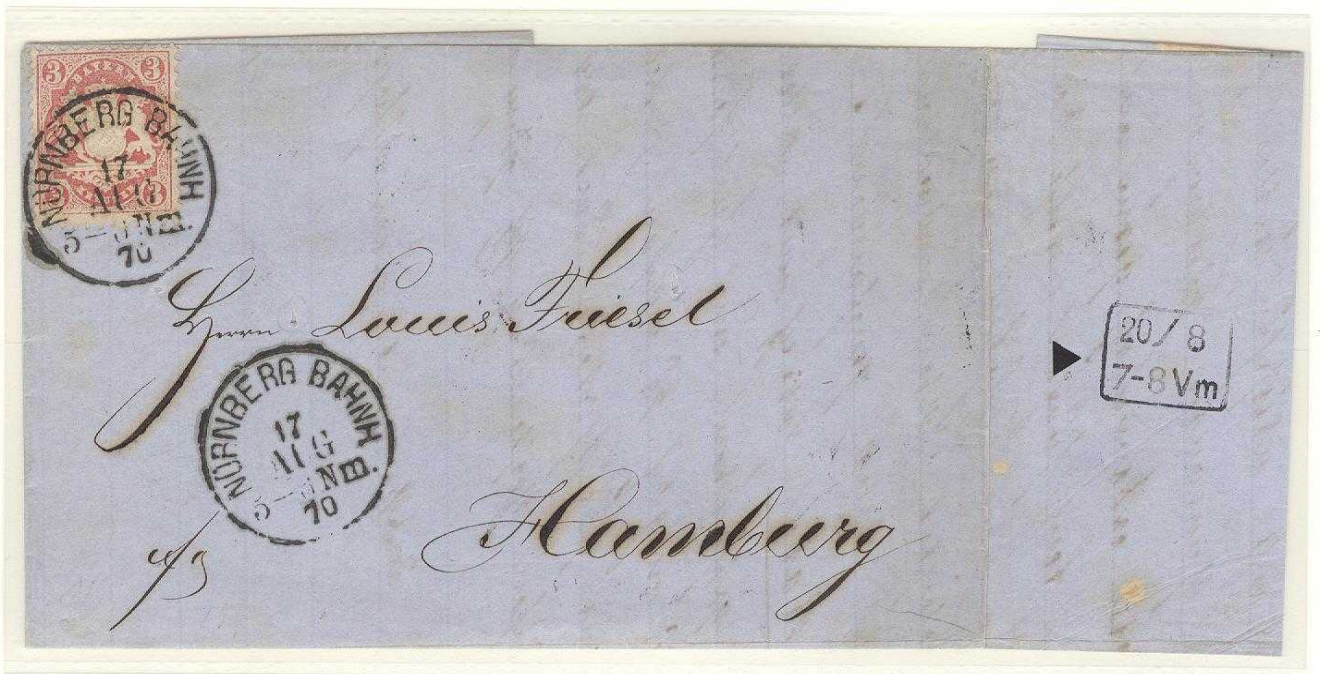 3 BAYERN 3
3 3
NÜRNBERG BAHNH B.
17
AUG
5— N
70
Herrn Louis Friesel
NÜRNBERG BAHNH B.
17
AUG
5— N
70
Hamburg
20/8
7-8 Vm